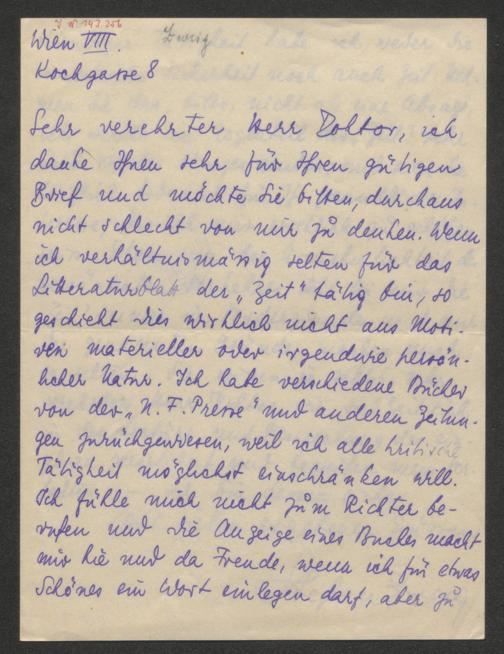 J. N. 147.356
Wien VIII.
Zweig
Kochgasse 8
Sehr verehrter Herr Doktor, ich
danke Ihnen sehr für Ihren gütigen
Brief und möchte Sie bitten, durchaus
nicht schlecht von mir zu denken. Wenn
ich verhältnismässig selten für das
Litteraturblatt der „Zeit“ tätig bin, so
geschieht dies wirklich nicht aus Moti-
ven materieller oder irgendwie persön-
licher Natur. Ich habe verschiedene Bücher
von der „N. F. Presse“ und anderen Zeitun-
gen zurückgewiesen, weil ich alle kritische
Tätigkeit möglichst einschränken will.
Ich fühle mich nicht zum Richter be-
rufen und die Anzeige eines Buches macht
mir hie und da Freude, wenn ich für etwas
Schönes ein Wort einlegen darf, aber zu